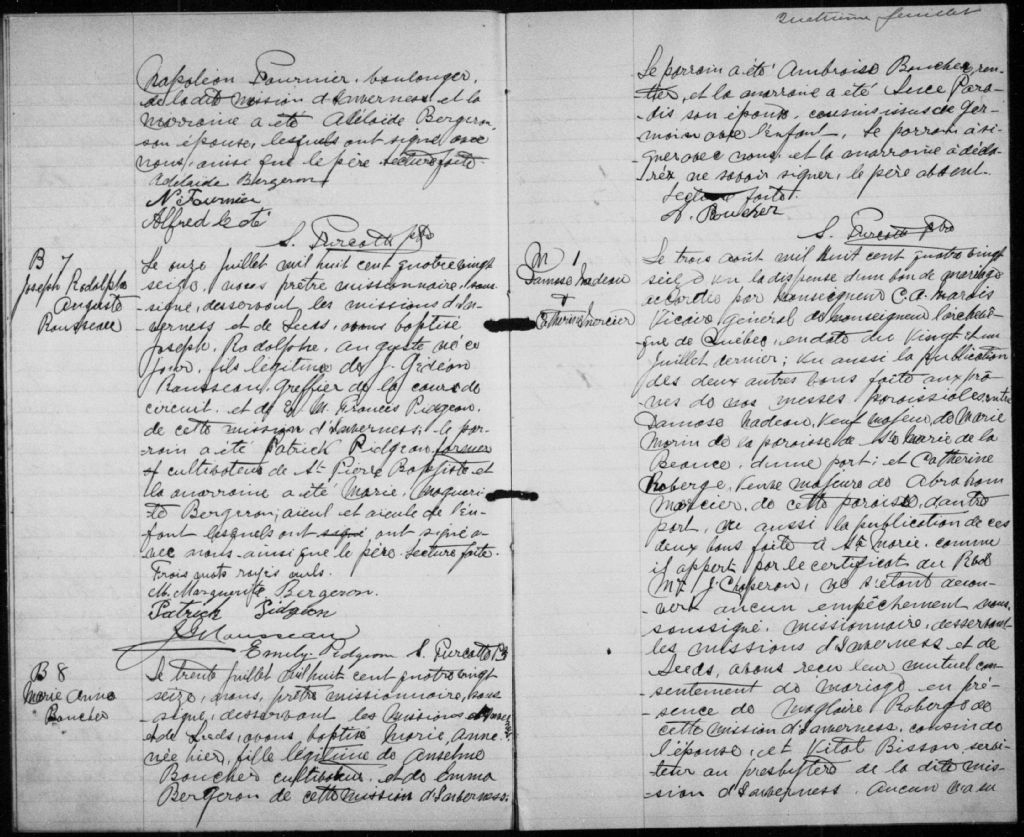 Napoléon Fournier, boulonger,
de la dite mission d'Inverness et la
marraine a été Adélaide Bergeron,
son épouse, lesquels ont signé avec
nous, ainsi que le père lecture faite
Adelaide Bergeron
N. Fournier
Alfred
S. Turcotte ptre
B 7
Joseph Rodolphe
Auguste
Rousseau
Le onze juillet mil huit cent quatre vingt
seize, nous prêtre missionnaire, sous-
signé, desservant les missions d'In-
verness et de Leeds, avons baptisé
Joseph, Rodolphe, Auguste né ce
jour, fils légitime de J. Gédéon
Rousseau, Greffier de la cour de
circuit et de E. M. Frances Pidgeon,
de cette mission d'Inverness; le par-
rain a été Patrick Pidgeon, farmer
cultivateur de St Pierre Baptiste et
la marraine a été Marie, Margueri-
te Bergeron; aieul et aieule de l'en-
fant lesquels ont signé ont signé a-
vec nous ainsi que le père. Lecture faite.
Trois mots rayés nuls.
M. Marguerite Bergeron.
Patrick Pidgeon
J G Rousseau
Emily Pidgeon S. Turcotte Ptr
B 8
Marie Anne
Boucher
Le trente juillet mil huit cent quatre vingt
seize, nous, prêtre missionnaire, sous
signé, desservant les missions d'Inverness
et de Leeds, avons baptisé Marie, Anne
née hier, fille légitime de Anselme
Boucher cultivateur et de Emma
Bergeron de cette mission d'Inverness.
Quatrième feuillet
Le parrain a été Ambroise Boucher, ren-
tier, et la marraine a été Luce Para-
dis son épouse, cousins issus de ger-
main avec l'enfant. Le parrain a si-
gné avec nous et la marraine a décla-
ré ne savoir signer, le père absent.
Lecture faite.
A. Boucher
S. Turcotte Ptre
M 1
Damase Nadeau
&
Catherine Mercier
Le trois août mil huit cent quatre vingt
seize Vu la dispense d'un ban de mariage
accordée par Monseigneur C. A. Marois
Vicaire général de Monseigneur l'archevê-
que de Québec, en date du Vingt et un
Juillet dernier; Vu aussi la publication
des deux autres bans faite aux prô-
nes de nos messes paroissiales entre
Damase Nadeau, Veuf majeur de Marie
Morin de la paroisse de Ste Marie de la
Beauce, d'une part; et Catherine
Roberge, Veuve majeure de Abraham
Mercier, de cette paroisse, d'autre
part, vu aussi la publication de ces
deux bans faite à Ste Marie, comme
il appert par le certificat du Rvd
Mr J. Chaperon, ne s'étant decou-
vert aucun empêchement nous,
soussigné, missionnaire, desservant
les missions d'Inverness et de
Leeds, avons reçu leur mutuel con-
sentement de mariage, en pré-
sence de Magloire Roberge de
cette mission d'Inverness, cousin de
l'épouse, et Vital Bisson, servi-
teur au presbytère de la dite mis-
sion d'Inverness. Aucun n'a su